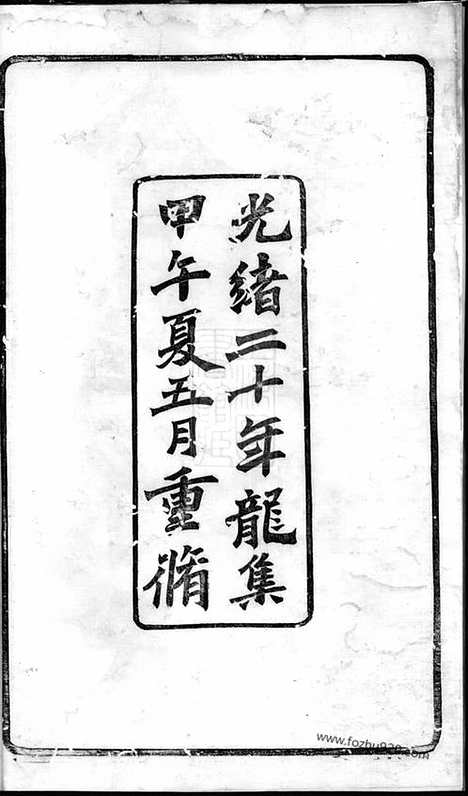 光緒二十年龍集
甲午夏五月重脩
www.fozhu920.com